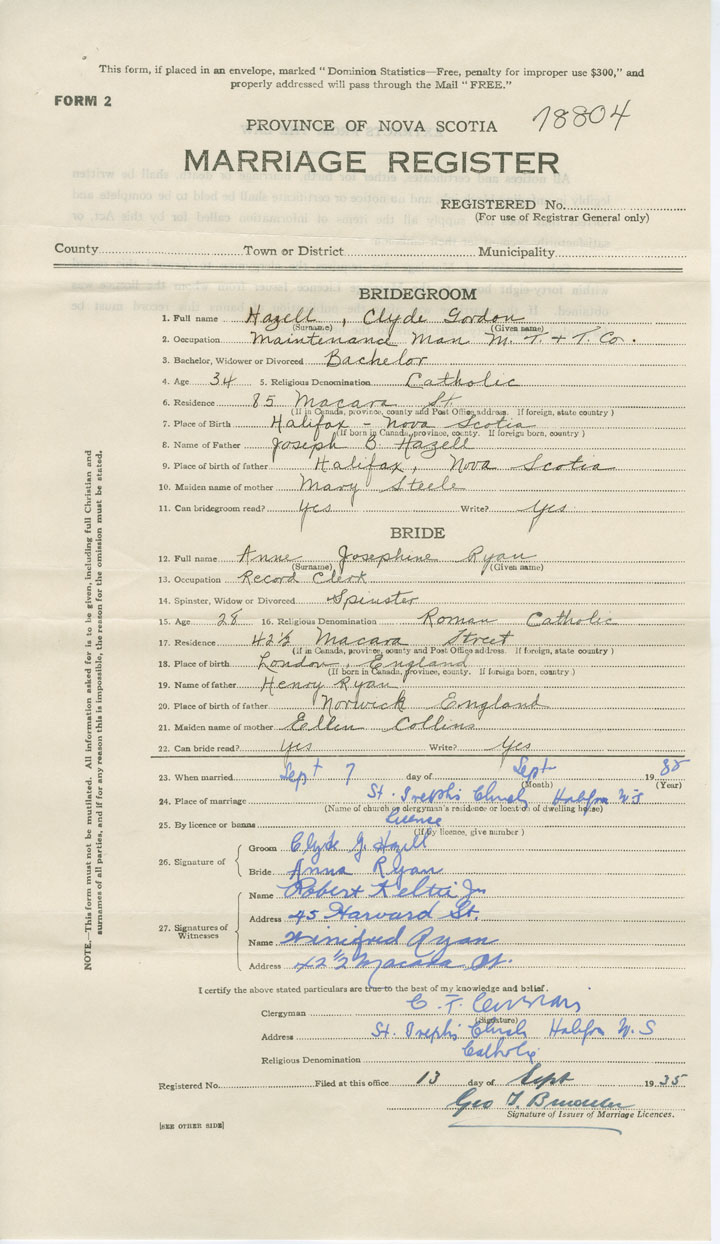 This form, if placed in an envelope, marked "Dominion Statistics—Free, penalty for improper use $300," and
properly addressed will pass through the Mail "FREE."
FORM 2
18804
PROVINCE OF NOVA SCOTIA
MARRIAGE REGISTER
REGISTERED No.
(For use of Registrar General only)
County Town or District Municipality
BRIDEGROOM
1. Full name Hazell, Clyde Gordon
(Surname) (Given name)
2. Occupation Maintenance Man M. T. & T. Co.
3. Bachelor, Widower or Divorced Bachelor
4. Age 34 5. Religious Denomination Catholic
6. Residence 85 Macara St.
(If in Canada, province, county and Post Office address. If foreign, state country)
7. Place of Birth Halifax - Nova Scotia
(If born in Canada, province, county. If foreign born, country)
8. Name of Father Joseph B. Hazell
9. Place of birth of father Halifax, Nova Scotia
10. Maiden name of mother Mary Steele
11. Can bridegroom read? yes Write? yes
BRIDE
12. Full name Anne Josephine Ryan
(Surname) (Given name)
13. Occupation Record Clerk
14. Spinster, Widow or Divorced Spinster
15. Age 28 16. Religious Denomination Roman Catholic
17. Residence 42½ Macara Street
(If in Canada, province, county and Post Office address. If foreign, state country)
18. Place of birth London, England
(If born in Canada, province, county. If foreign born, country)
19. Name of father Henry Ryan
20. Place of birth of father Norwick England
21. Maiden name of mother Ellen Collins
22. Can bride read? yes Write? yes
23. When married Sept 7 day of Sept 1935
(Month) (Year)
24. Place of marriage St. Josephs Church Halifax N.S
(Name of church or clergyman's residence or location of dwelling house)
25. By licence or banns License
(If by licence, give number)
26. Signature of
Groom Clyde G. Hazell
Bride Anna Ryan
27. Signatures of Witnesses
Name Robert Jr
Address 45 Harvard St.
Name Winifred Ryan
Address 42½ Macara St.
I certify the above stated particulars are true to the best of my knowledge and belief.
Clergyman C. F.
(Signature)
Address St. Josephs Church Halifax N.S
Religious Denomination Catholic
Registered No. Filed at this office 13 day of Sept 1935
Geo
Signature of Issuer of Marriage Licences.
[SEE OTHER SIDE]
NOTE.—This form must not be mutilated. All information asked for is to be given, including full Christian and
surnames of all parties, and if for any reason this is impossible, the reason for the omission must be stated.